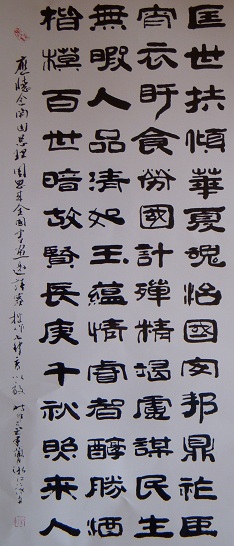 匡世扶傾華夏魂治國安邦鼎祚臣
宵衣旰食勞國計殫精竭慮謀民生
無暇人品清如玉蘊情睿智醇勝酒
楷模百世暗故賢長庚千秋照來人
周恩來全國書畫邀請展